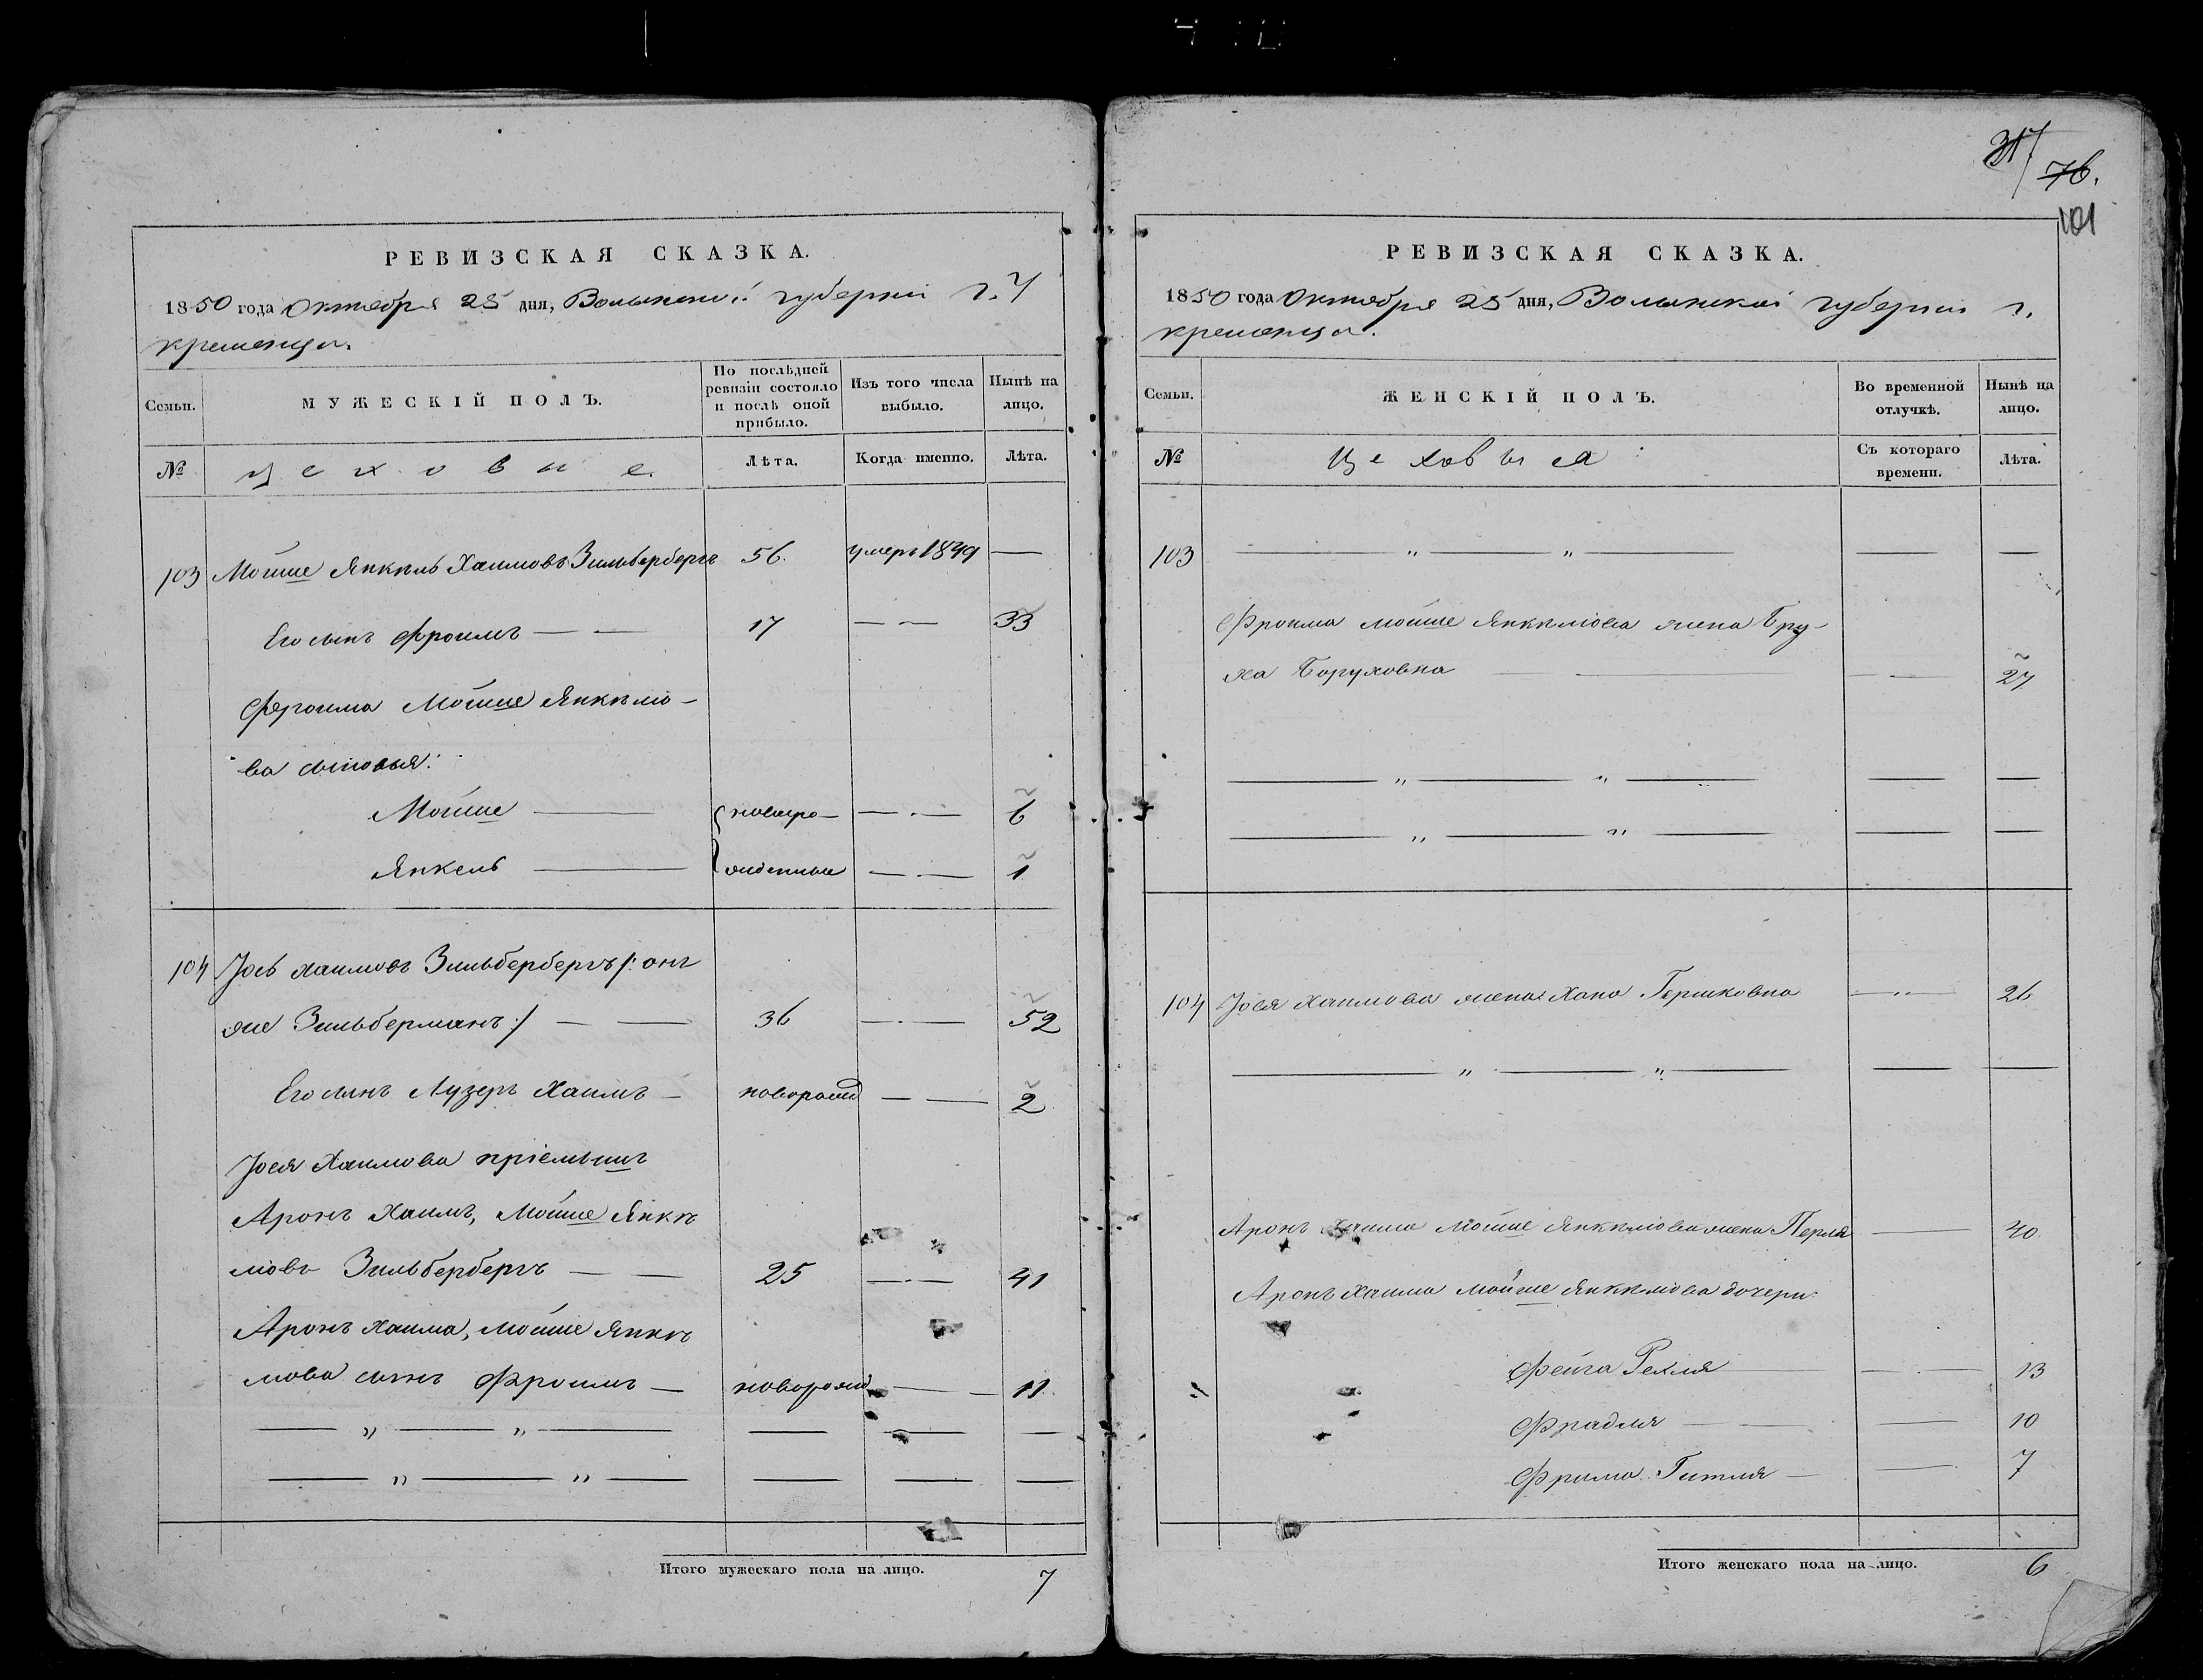 317
76.
101
РЕВИЗСКАЯ СКАЗКА.
1850 года Октября 25 дня, Волынской губернiи г.
кременца.
Семьи. МУЖЕСКIЙ ПОЛЪ. По послѣдней ревизiи состояло и послѣ оной прибыло. Изъ того числа выбыло. Нынѣ на лицо.
№ цеховые. Лѣта. Когда именно. Лѣта.
103 Мошше Янкель Хаимовъ Зильбербергъ 56. умеръ 1849 —
Его сынъ Фроимъ — — 17 — — 33
Фроима Мошше Янкелю-
ва сыновья:
Мошше — новоро- — . — 6
Янкель — жденные — . — 1
104 Iось Хаимовъ Зильбербергъ /: онъ
же Зильберманъ :/ — — 36 — . — 52
Его сынъ Лузеръ Хаимъ — новорожд — — 2
Iося Хаимова прiемышъ
Аронъ Хаимъ, Мошше Янке
лiовъ Зильбербергъ — — 25 — . — 41
Аронъ Хаима, Мошше Янке
лiова сынъ Фроимъ — новорожд — — 11.
— „ — „ — — — —
— „ — „ — — — —
Итого мужескаго пола на лицо. 7
РЕВИЗСКАЯ СКАЗКА.
1850 года Октября 25 дня, Волынской губернiи г.
кременца.
Семьи. ЖЕНСКIЙ ПОЛЪ. Во временной отлучкѣ. Нынѣ на лицо.
№ Цеховыя Съ котораго времени. Лѣта.
103 — „ — „ — — —
Фроима Мошше Янкелiова жена Бру-
ха Боруховна — — — — 27
— „ — „ — — —
— „ — „ — — —
104 Iося Хаимова жена Хана Гершковна — „ — 26
— „ — „ — — —
Аронъ Хаима Мошше Янкелiова жена Перля — 40
Аронъ Хаима Мошше Янкелiова дочери:
Фейга Рехля — — . — 13
Фрадля — — — 10
Фрима Гитля — — 7
Итого женскаго пола на лицо. 6